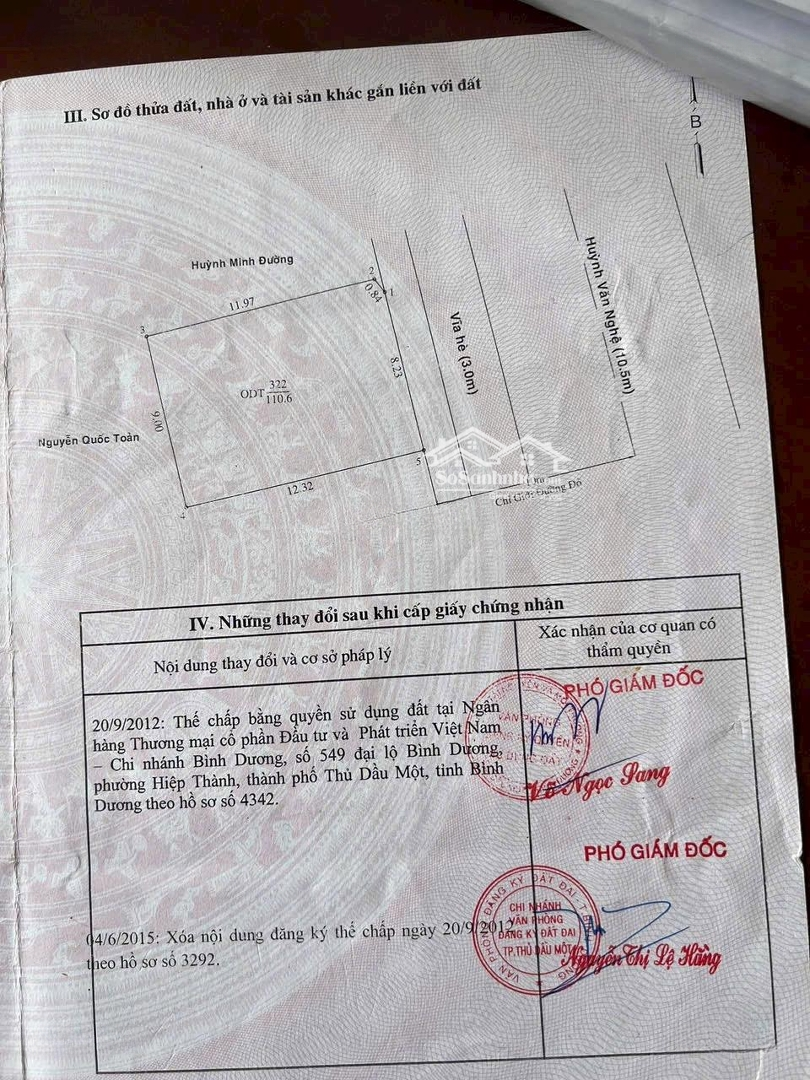 III. Sơ đồ thửa đất, nhà ở và tài sản khác gắn liền với đất
B
Huỳnh Minh Đường
2
0.84
1
11.97
3
Vỉa hè (3.0m)
Huỳnh Văn Nghệ (10.5m)
8.23
ODT 322
110.6
9.00
Nguyễn Quốc Toàn
5
12.32
4
Chỉ Giới Đường Đỏ
IV. Những thay đổi sau khi cấp giấy chứng nhận
Nội dung thay đổi và cơ sở pháp lý
Xác nhận của cơ quan có
thẩm quyền
20/9/2012: Thế chấp bằng quyền sử dụng đất tại Ngân
hàng Thương mại cổ phần Đầu tư và Phát triển Việt Nam
– Chi nhánh Bình Dương, số 549 đại lộ Bình Dương,
phường Hiệp Thành, thành phố Thủ Dầu Một, tỉnh Bình
Dương theo hồ sơ số 4342.
PHÓ GIÁM ĐỐC
VĂN PHÒNG
Võ Ngọc Sang
04/6/2015: Xóa nội dung đăng ký thế chấp ngày 20/9/2012
theo hồ sơ số 3292.
PHÓ GIÁM ĐỐC
VĂN PHÒNG ĐĂNG KÝ ĐẤT ĐAI
CHI NHÁNH
VĂN PHÒNG
ĐĂNG KÝ ĐẤT ĐAI
TP.THỦ DẦU MỘT
Nguyễn Thị Lệ Hằng